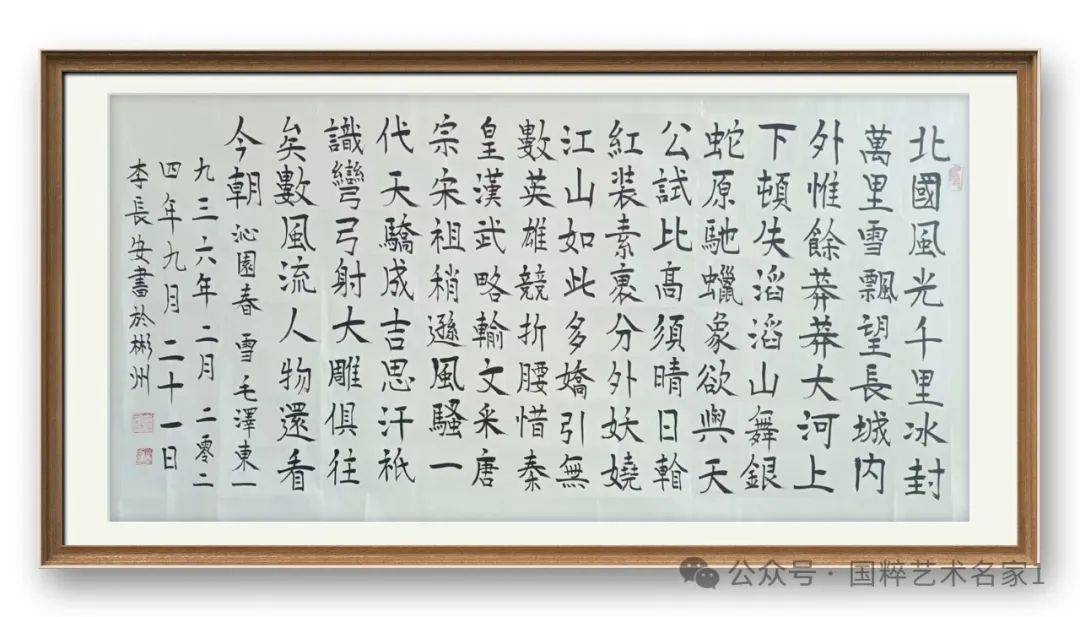 北國風光千里冰封
萬里雪飄望長城内
外惟餘莽莽大河上
下頓失滔滔山舞銀
蛇原馳蠟象欲與天
公試比高須晴日
紅裝素裹分外妖嬈
江山如此多嬌引無
數英雄競折腰惜秦
皇漢武略輸文采唐
宗宋祖稍遜風騷一
代天驕成吉思汗祇
識彎弓射大雕俱往
矣數風流人物還看
今朝 沁園春 雪 毛澤東 一
九三六年二月 二零二
四年九月二十一日
李長安書於彬州
公众号 · 国粹艺术名家1